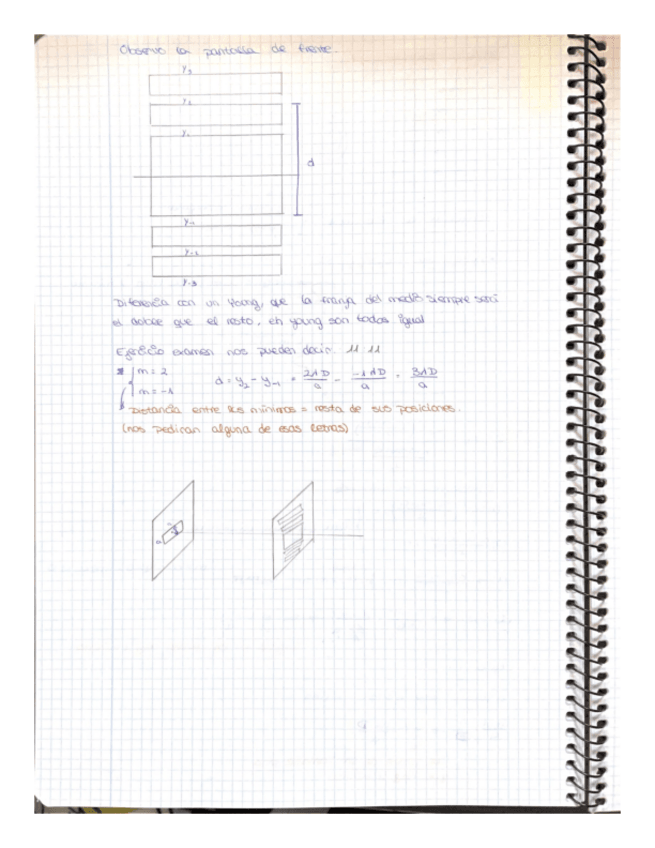 Observo la pantalla de frente.
y₃
y₂
y₁
d
y₋₁
y₋₂
y₋₃
Diferencia con un Young, que la franja del medio siempre será
el doble que el resto, en young son todas igual
Ejercicio examen nos pueden decir:
m = 2
m = -1
d = y₂ - y₋₁ = 2λD/a - -1λD/a = 3λD/a
Distancia entre los mínimos = resta de sus posiciones.
(nos pedirán alguna de esas letras)
a